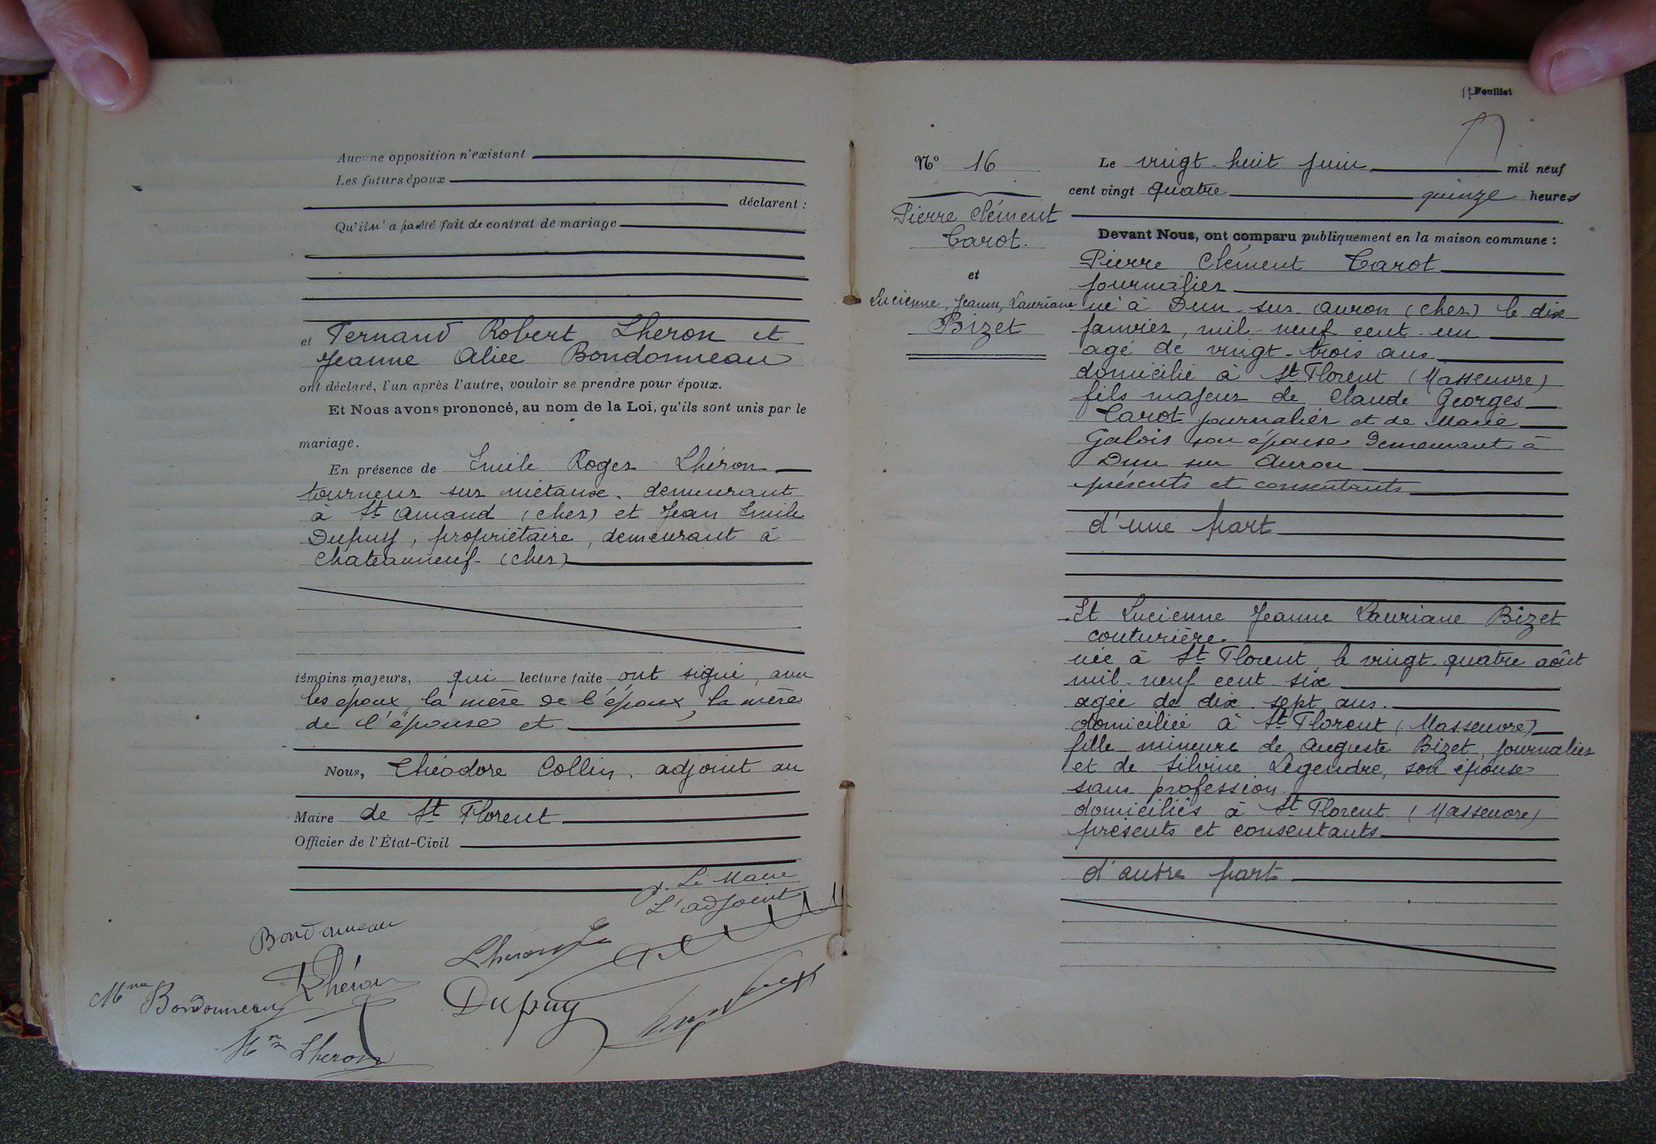 Aucune opposition n'existant
Les futurs époux
déclarent :
Qu'il n'a pas été fait de contrat de mariage
et Fernand Robert Lheron et
Jeanne Alice Bondonneau
ont déclaré, l'un après l'autre, vouloir se prendre pour époux.
Et Nous avons prononcé, au nom de la Loi, qu'ils sont unis par le
mariage.
En présence de Emile Roger Lhéron
tourneur sur métaux, demeurant
à St Amand (cher) et Jean Emile
Dupuy, propriétaire, demeurant à
Chateauneuf (cher)
témoins majeurs, qui lecture faite ont signé, avec
les époux, la mère de l'époux, la mère
de l'épouse et
Nous, Théodore Collin, adjoint au
Maire de St Florent
Officier de l'État-Civil
p. Le Maire
L'adjoint
Bondonneau
Lheron
Lhéron
Mme Bondonneau
Dupuy
Mme Lheron
11 Feuillet
N° 16
Pierre Clément
Carot.
et
Lucienne, Jeanne, Lauriane
Bizet
Le vingt-huit juin mil neuf
cent vingt quatre quinze heures
Devant Nous, ont comparu publiquement en la maison commune :
Pierre Clément Carot
journalier
né à Dun-sur-Auron (cher) le dix
janvier, mil neuf cent un
agé de vingt-trois ans
domicilié à St Florent (Massœuvre)
fils majeur de Claude Georges
Carot journalier et de Marie
Galois son épouse demeurant à
Dun sur Auron
présents et consentants
d'une part
Et Lucienne Jeanne Lauriane Bizet
couturière.
née à St Florent, le vingt-quatre août
mil neuf cent six
agée de dix-sept ans.
domiciliée à St Florent (Massœuvre)
fille mineure de Auguste Bizet, journalier
et de Silvine Legendre, son épouse
sans profession
domiciliés à St Florent (Massœuvre)
présents et consentants
d'autre part